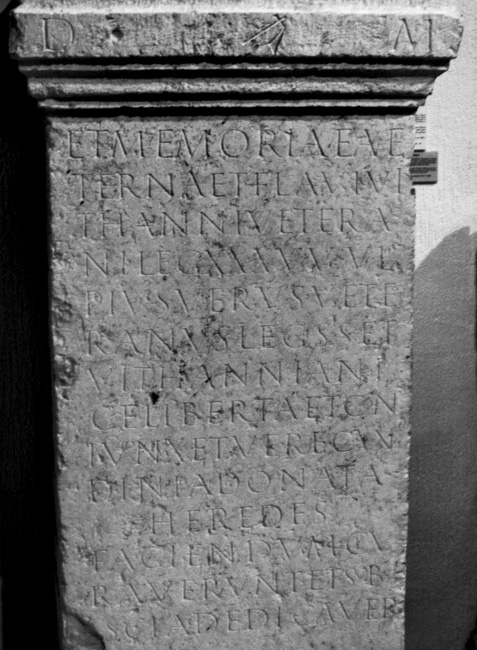 D M
ET MEMORIAE AE
TERNAE T FLAVI VI
THANNI VETERA
NI LEG XXX V V VL
PIVS VERVS VETE
RANVS LEG S S ET
VITHANNIANI
GELIBERTA ET CON
IVNX ET VERECVN
DINIA DONATA
HEREDES
FACIENDVM CV
RAVERVNT ET SB
SCIA DEDICAVER